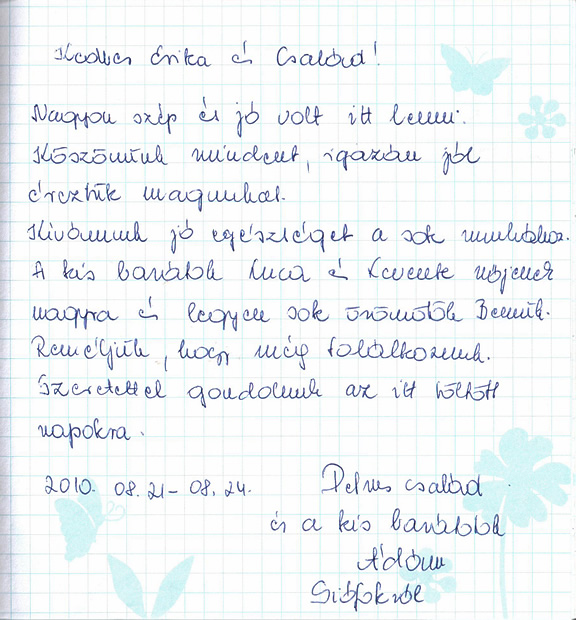 Kedves Erika és Család!
Nagyon szép és jó volt itt lenni.
Köszönünk mindent, igazán jól
éreztük magunkat.
Kívánunk jó egészséget a sok munkához.
A kis barátok Luca és Levente nőjenek
nagyra és legyen sok örömötök Bennük.
Reméljük, hogy még találkozunk.
Szeretettel gondolunk az itt töltött
napokra.
2010. 08. 21 - 08. 24.
család
és a kis barátotok
Ádám
Siófokról